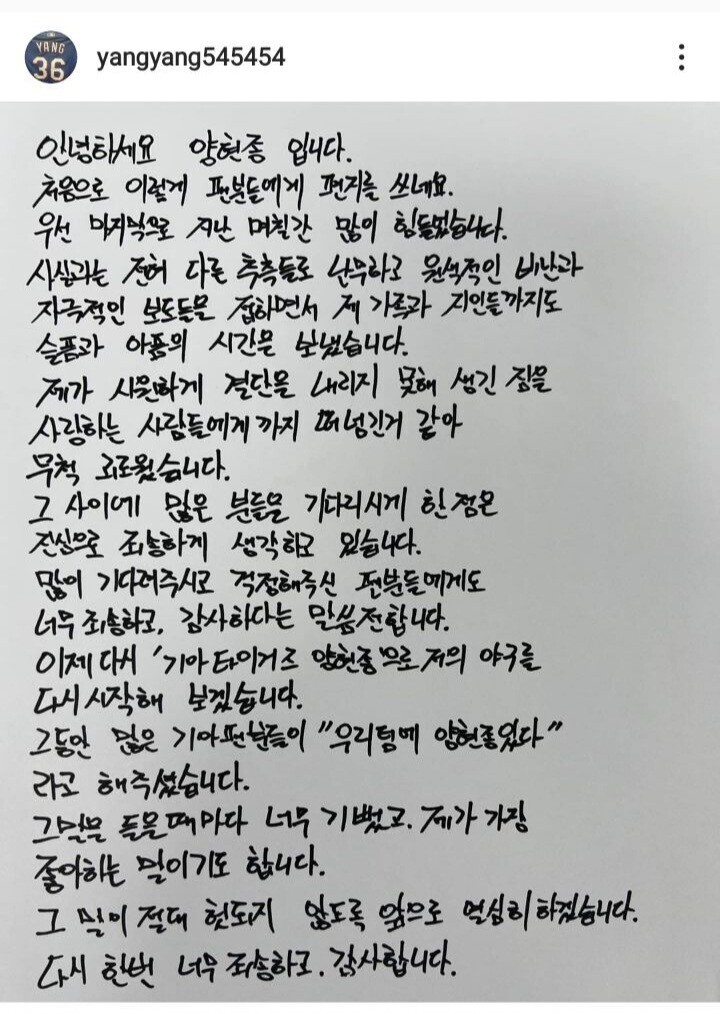 YANG
36
yangyang545454
안녕하세요 양현종 입니다.
처음으로 이렇게 팬분들에게 편지를 쓰네요.
우선 마지막으로 지난 며칠간 많이 힘들었습니다.
사실과는 전혀 다른 추측들로 난무하고 원색적인 비난과
자극적인 보도들을 접하면서 제 가족과 지인들까지도
슬픔과 아픔의 시간을 보냈습니다.
제가 시원하게 결단을 내리지 못해 생긴 짐을
사랑하는 사람들에게까지 떠넘긴거 같아
무척 괴로웠습니다.
그 사이에 많은 분들을 기다리시게 한점은
진심으로 죄송하게 생각하고 있습니다.
많이 기다려주시고 걱정해주신 팬분들에게도
너무 죄송하고, 감사하다는 말씀전합니다.
이제 다시 '기아 타이거즈 양현종'으로 저의 야구를
다시 시작해 보겠습니다.
그동안 많은 기아팬분들이 "우리팀에 양현종있다"
라고 해주셨습니다.
그말을 들을때마다 너무 기뻤고. 제가 가장
좋아하는 말이기도 합니다.
그 말이 절대 헛되지 않도록 앞으로 열심히 하겠습니다.
다시 한번 너무 죄송하고. 감사합니다.